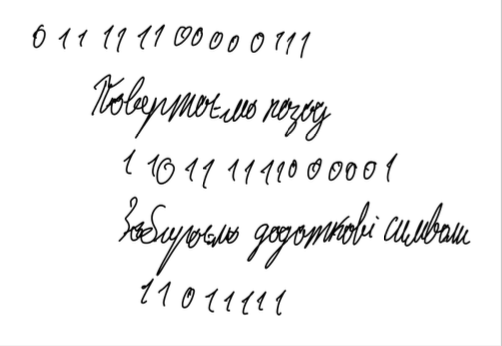 0 1 1 1 1 1 1 0 0 0 0 0 1 1 1
Повертаємо назад
1 1 0 1 1 1 1 1 1 0 0 0 0 0 1
Забираємо додаткові символи
1 1 0 1 1 1 1 1